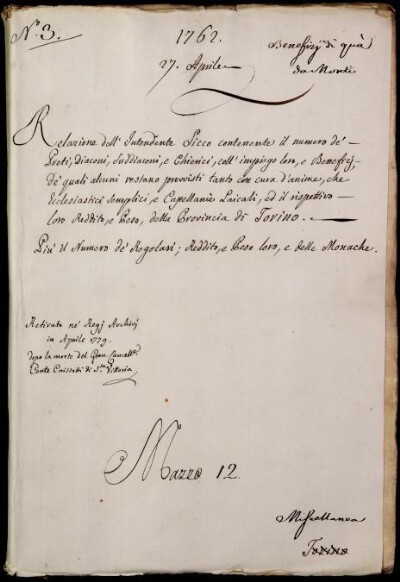 N.º 3.
1762.
27. Aprile
Benefizj di quà
da Monti
Relazione dell' Intendente Sicco contenente il numero de'
Preti, Diaconi, Suddiaconi, e Chierici, coll' impiego loro, e Benefizj,
de' quali alcuni restano provvisti tanto con cura d'anime, che
Ecclesiastici semplici, e Capellanie Laicali, ed il rispettivo
loro Reddito, e Peso, della Provincia di Torino.
Più il Numero de' Regolari; Reddito, e Peso loro, e delle Monache.
Retirata ne' Regj Archivj
in Aprile 1779.
dopo la morte del Gran Cancell.e
Conte Caissotti di S.ta Vittoria
Mazzo 12.
Miscellanea
Torino